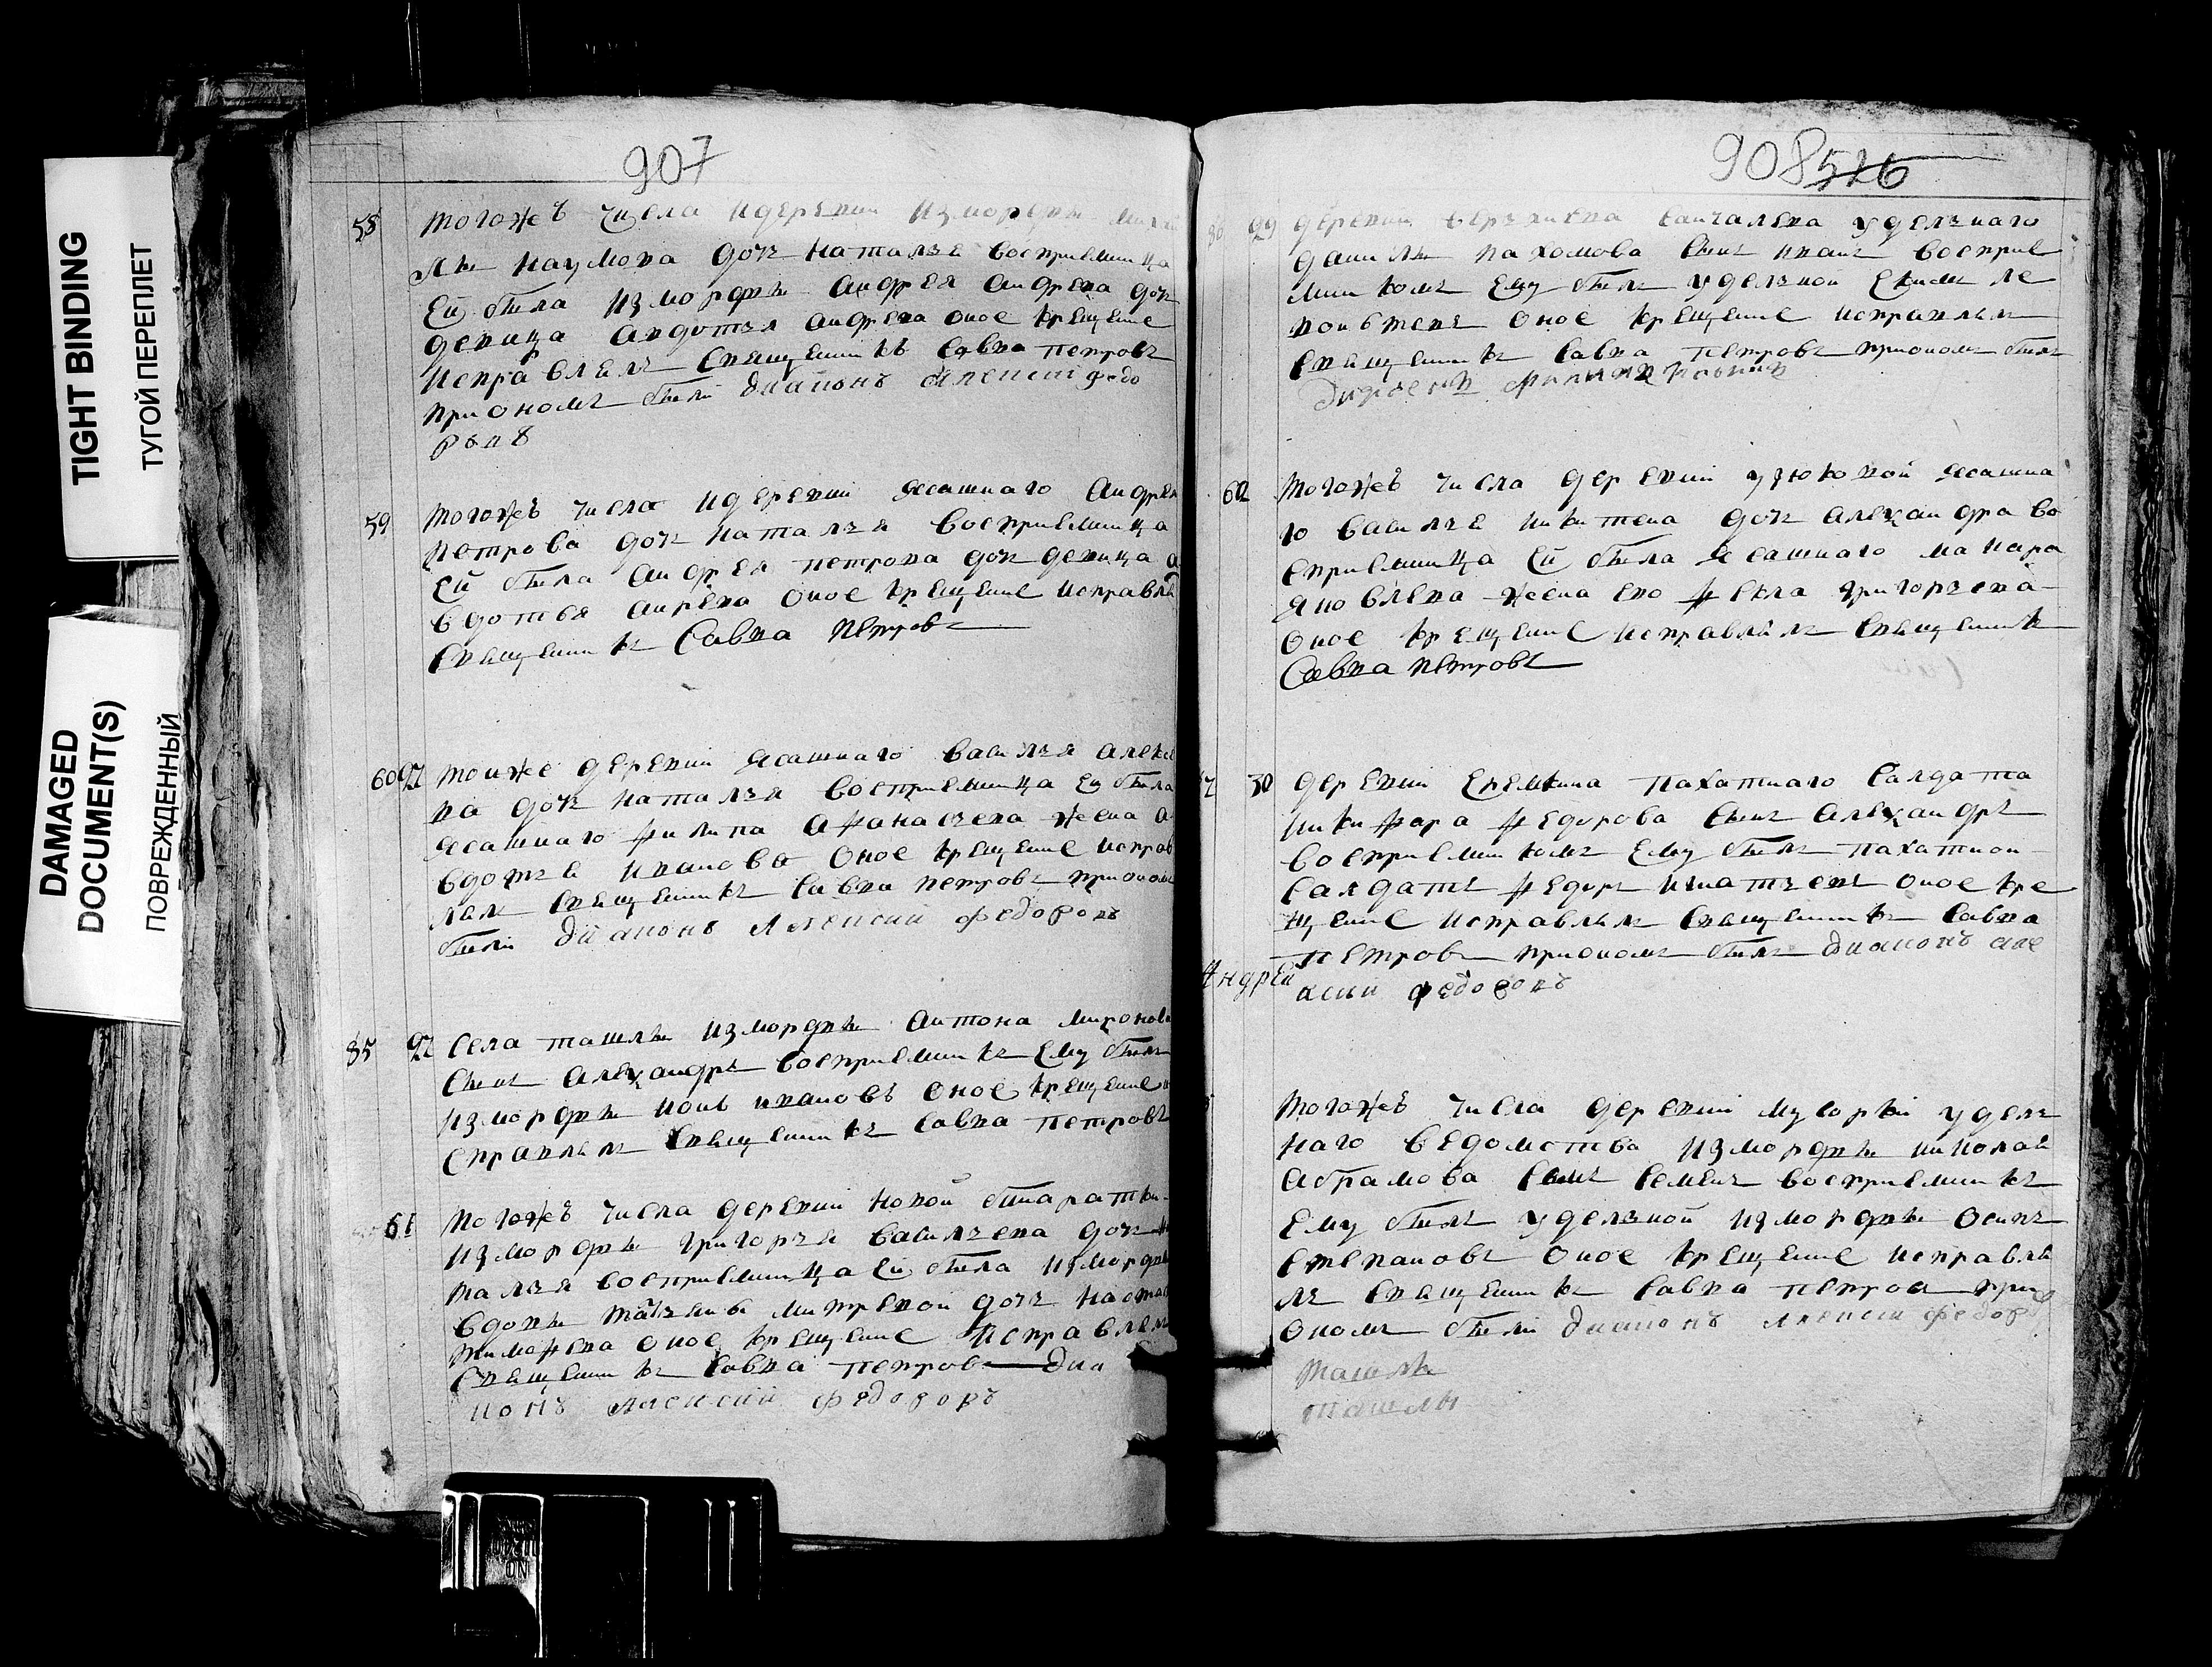 TIGHT BINDING
ТУГОЙ ПЕРЕПЛЕТ
DAMAGED
DOCUMENT(S)
ПОВРЕЖДЕННЫЙ
907
58 тогожъ числа идеревни измордвы михаи
лы наумова дочь наталья восприемница
ей была измордвы андрея андреева дочь
девица авдотья андрева оное крещение
исправлялъ священникъ савва петровъ
приономъ были диаконъ алексий федо
ровъ
59 тогожъ числа идеревни ясашнаго андрея
петрова дочь наталья восприемница
ей была андрея петрова дочь девица а
вдотья анрева оное крещение исправля
священникъ Савва петровъ
60 27 тоиже деревни ясашнаго василья алексе
ва дочь наталья восприемница ей была
ясашнаго филипа афанасьева жена а
вдотья иванова оное крещение исправ
лялъ священникъ савва петровъ приономъ
были диаконъ Алексий федоровъ
85 27 Села ташлы измордвы антона миронова
сынъ александръ восприемникъ ему былъ
измордвы ивановъ оное крещение и
справлялъ священникъ савва петровъ
61 тогожъ числа деревни новой
измордвы григорья васильева дочь н
талья восприемница ей была измордвы
вдовы дочь
тимофева оное крещение исправлялъ
священникъ савва петровъ диа
конъ Алексий федоровъ
908 526
29 деревни уделнаго
данилы пахомова сынъ иванъ восприе
мникомъ ему былъ уделной
оное крещение исправлялъ
священникъ савва петровъ приономъ былъ
62 тогожъ числа деревни узюковой ясашна
го василья никитева дочь александра во
сприемница ей была ясашнаго макара
яковлева жена ево фекла григорьева
оное крещение исправлялъ священникъ
Савва петровъ
30 деревни еремкина пахатнаго салдата
никифара федорова сынъ александръ
восприемникомъ ему былъ пахатнои
салдатъ федоръ игнатьевъ оное кре
щение исправлялъ священникъ савва
петровъ приономъ былъ диаконъ але
Андрей ксии федоровъ
тогожъ числа деревни мусорки удель
наго ведомства измордвы николаи
абрамова сынъ семенъ восприемникъ
ему былъ уделной измордвы осипъ
степановъ оное крещение исправля
лъ священникъ савва петровъ при
ономъ были диаконъ Алексии федоро
ташлы
ташлы